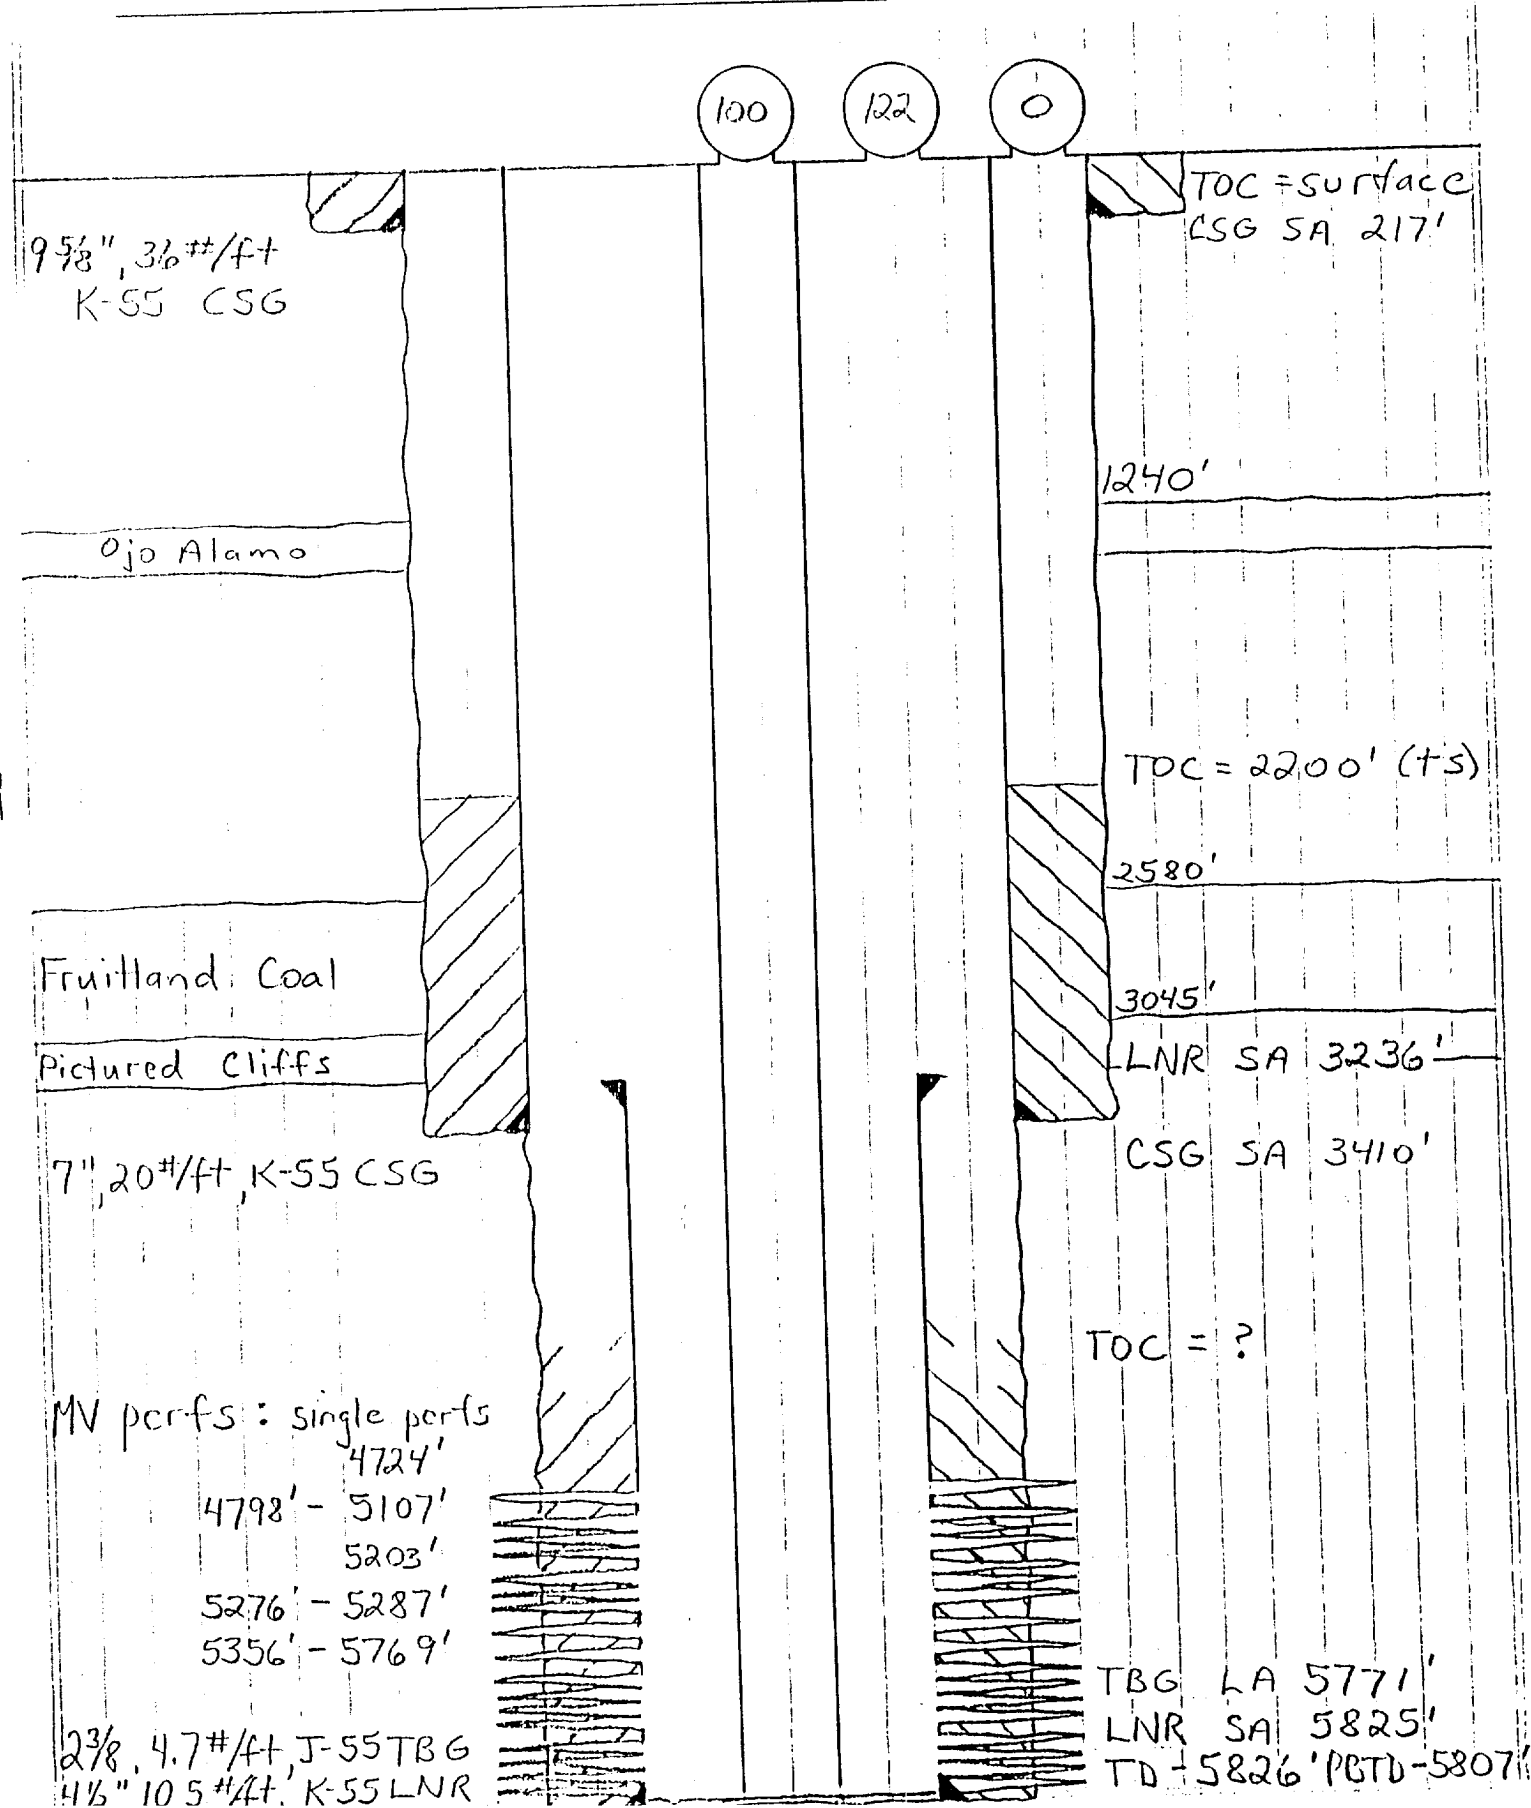 100 122 0
TOC = surface
CSG SA 217'
9 5/8", 36 #/ft
K-55 CSG
1240'
Ojo Alamo
TOC = 2200' (ts)
2580'
Fruitland Coal
3045'
Pictured Cliffs
LNR SA 3236'
CSG SA 3410'
7", 20#/ft, K-55 CSG
TOC = ?
MV perfs: single perfs
4724'
4798' - 5107'
5203'
5276' - 5287'
5356' - 5769'
TBG LA 5771'
LNR SA 5825'
TD - 5826' PBTD - 5807'
2 3/8, 4.7#/ft, J-55 TBG
4 1/2" 10.5 #/ft, K-55 LNR